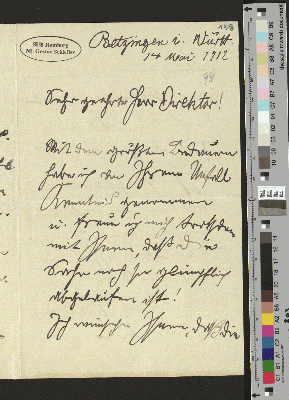 198
M/B Hamburg
Betzingen i. Württ.
14 Mai 1912
Sehr geehrter Herr Direktor!
Mit dem größten Bedauern
habe ich von Ihrem Unfall
Kenntnis genommen
u. freue ich mich
mit Ihnen, daß die
Sache noch so glimpflich
abgelaufen ist!
Ich wünsche Ihnen, daß die